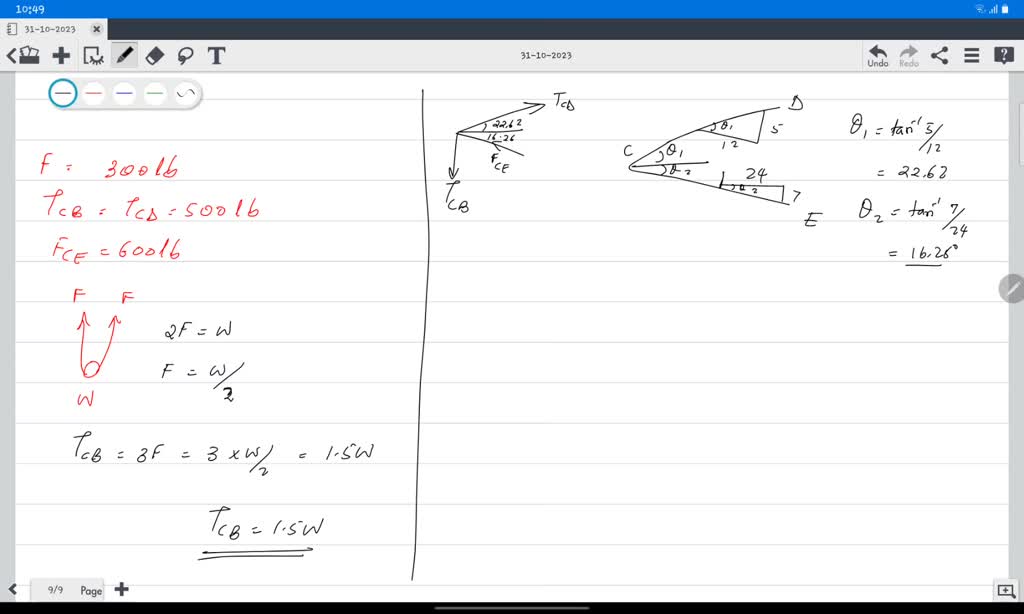 10:49
31-10-2023
T
31-10-2023
Undo
Redo
F = 300lb
TCB = TCD = 500lb
FCE = 600lb
F F
W
2F = W
F = W/2
TCB = 3F = 3 × W/2 = 1.5W
TCB = 1.5W
TCD
22.62
16.26
FCE
TCB
D
θ1
5
12
C
θ1
θ2
24
θ2
7
E
θ1 = tan-1 5/12
= 22.62
θ2 = tan-1 7/24
= 16.26°
9/9 Page